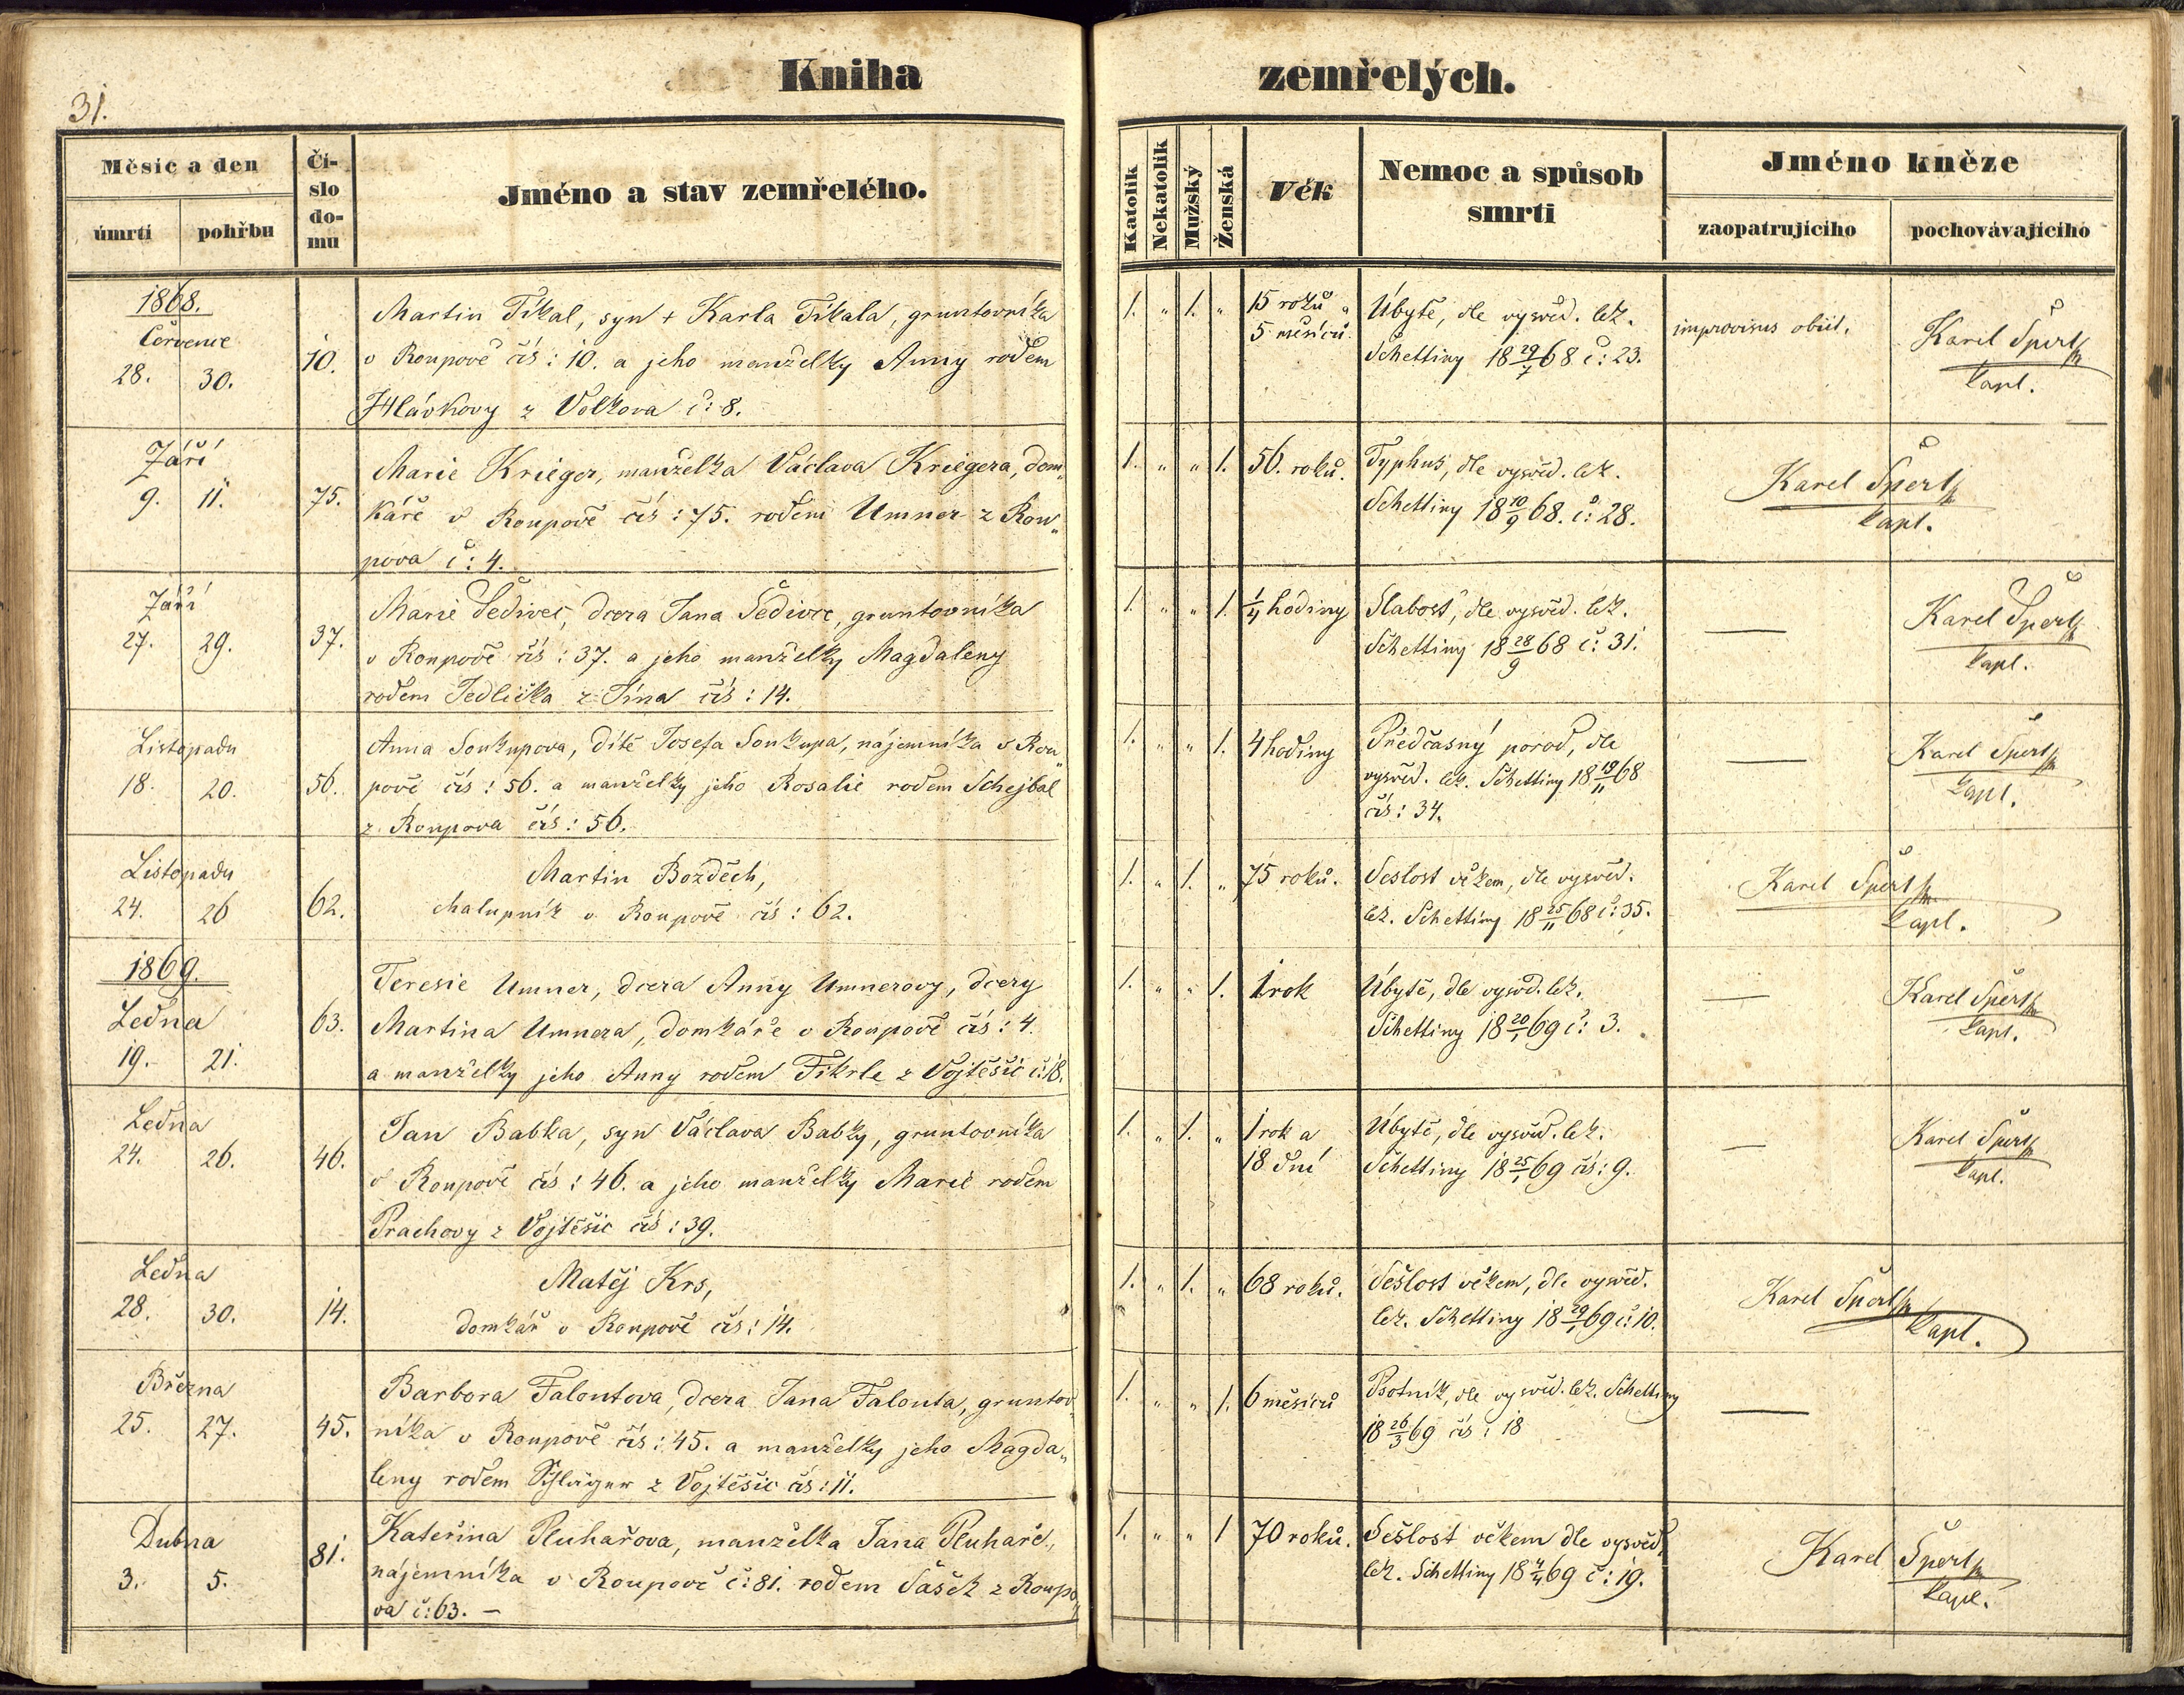 31.
Kniha zemřelých.
Měsíc a den
úmrtí pohřbu
Čí-
slo
do-
mu
Jméno a stav zemřelého.
Katolík
Nekatolík
Mužský
Ženská
Věk
Nemoc a spůsob
smrti
Jméno kněze
zaopatrujícího pochovávajícího
1868.
Července
28. 30.
10.
Martin Tikal, syn + Karla Tikala, gruntovníka
v Roupově čís: 10. a jeho manželky Anny rodem
Hlávkovy z Volkova č: 8.
1. „ 1. „
15 roků a
5 měsíců
Úbytě, dle vysvěd. lék.
Schettiny 18 29/7 68 č: 23.
improvisus obiit.
Karel Špert
kapl.
Září
9. 11.
75.
Marie Krieger, manželka Václava Kriegera, dom„
káře v Roupově čís: 75. rodem Umner z Rou„
pova č: 4.
1. „ „ 1.
56. roků.
Typhus, dle vysvěd. lék.
Schettiny 18 10/9 68. č: 28.
Karel Špert
kapl.
Září
27. 29.
37.
Marie Šedivec, dcera Jana Šedivce, gruntovníka
v Roupově čís: 37. a jeho manželky Magdaleny
rodem Jedlička z Jína čís: 14.
1. „ „ 1.
1/4 hodiny
Slabost, dle vysvěd. lék.
Schettiny 18 28/9 68 č: 31.
—
Karel Špert
kapl.
Listopadu
18. 20.
56.
Anna Soukupova, dítě Josefa Soukupa, nájemníka v Rou„
pově čís: 56. a manželky jeho Rosalie rodem Schejbal
z Roupova čís: 56.
1. „ „ 1.
4 hodiny
Předčasný porod, dle
vysvěd. lék. Schettiny 18 19/11 68
čís: 34.
—
Karel Špert
kapl.
Listopadu
24. 26
62.
Martin Bozděch,
chalupník v Roupově čís: 62.
1. „ 1. „
75 roků.
Sešlost věkem, dle vysvěd.
lék. Schettiny 18 25/11 68 č: 35.
Karel Špert
kapl.
1869.
Ledna
19. 21.
63.
Teresie Umner, dcera Anny Umnerovy, dcery
Martina Umnera, domkáře v Roupově čís: 4.
a manželky jeho Anny rodem Fikrle z Vojtěšic č: 18.
1. „ „ 1.
1 rok
Úbytě, dle vysvěd. lék.
Schettiny 18 20/1 69 č: 3.
—
Karel Špert
kapl.
Ledna
24. 26.
46.
Jan Babka, syn Václava Babky, gruntovníka
v Roupově čís: 46. a jeho manželky Marie rodem
Prachovy z Vojtěšic čís: 39.
1. „ 1. „
1 rok a
18 dní
Úbytě, dle vysvěd. lék.
Schettiny 18 25/1 69 čís: 9.
—
Karel Špert
kapl.
Ledna
28. 30.
14.
Matěj Krs,
domkář v Roupově čís: 14.
1. „ 1. „
68 roků.
Sešlost věkem, dle vysvěd.
lék. Schettiny 18 29/1 69 č: 10.
Karel Špert
kapl.
Března
25. 27.
45.
Barbora Faloutova, dcera Jana Falouta, gruntov„
níka v Roupově čís: 45. a manželky jeho Magda„
leny rodem z Vojtěšic čís: 11.
1. „ „ 1.
6 měsíců
Psotník, dle vysvěd. lék. Schettiny
18 26/3 69 čís: 18
—
Dubna
3. 5.
81.
Kateřina Pluhařova, manželka Jana Pluhaře,
nájemníka v Roupově č: 81. rodem Sašek z Roupo„
va č: 63. —
1. „ „ 1
70 roků.
Sešlost věkem dle vysvěd.
lék. Schettiny 18 4/4 69 č: 19.
Karel Špert
kapl.